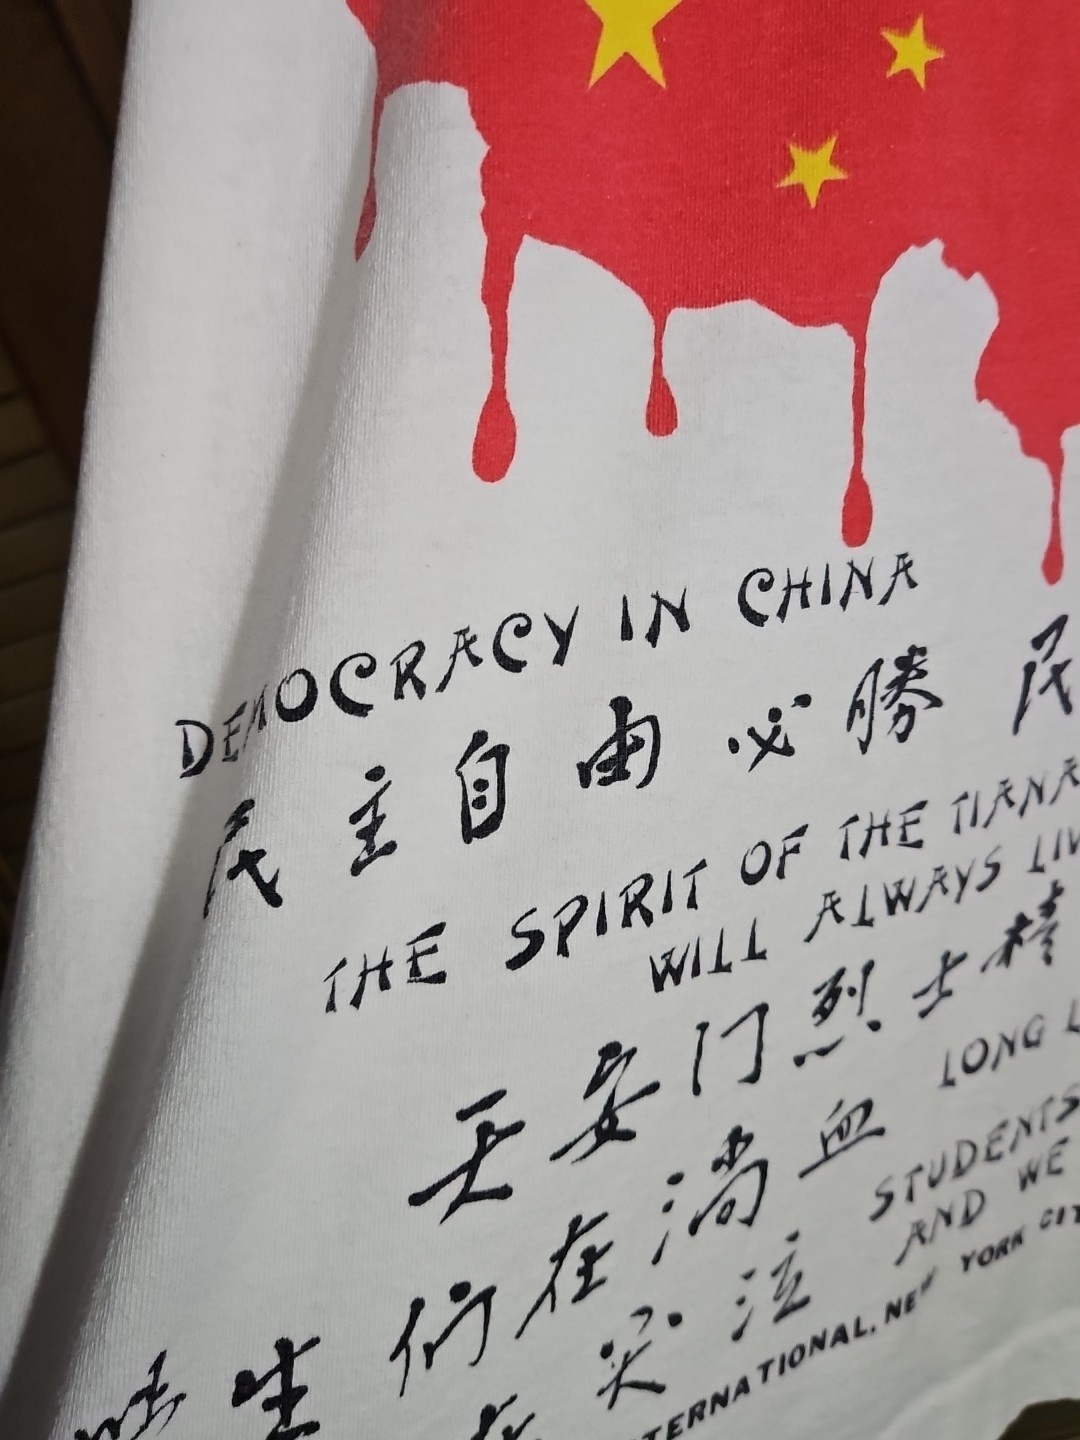 DEMOCRACY IN CHINA
民主自由必勝 民
THE SPIRIT OF THE TIANA
WILL ALWAYS LIV
天安門烈士精
LONG L
生們在淌血
STUDENTS
AND WE
哭泣
TERNATIONAL, NEW YORK CITY